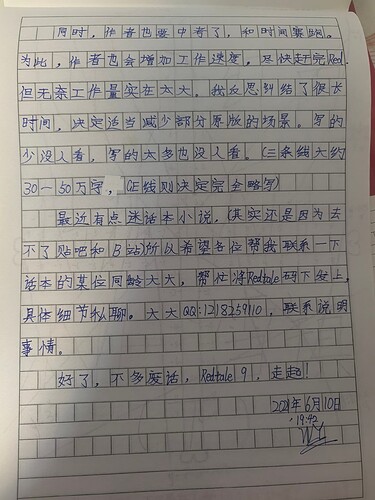 同时，作者也要中考了，和时间赛跑。
为此，作者也会增加工作速度，尽快赶完Red.
但无奈工作量实在太大，我反思纠结了很长
时间，决定适当减少部分原版的场景。写的
少没人看，写的太多也没人看。（三条线大约
30—50万字，GE线则决定完全略写）
最近有点迷话本小说，（其实还是因为去
不了贴吧和B站）所以希望各位帮我联系一下
话本的某位同龄大大，帮忙将Redtale码下发上，
具体细节私聊。大大QQ:1218259110，联系说明
事情。
好了，不多废话，Redtale 9，走起！
2021年6月10日
19:42
WY